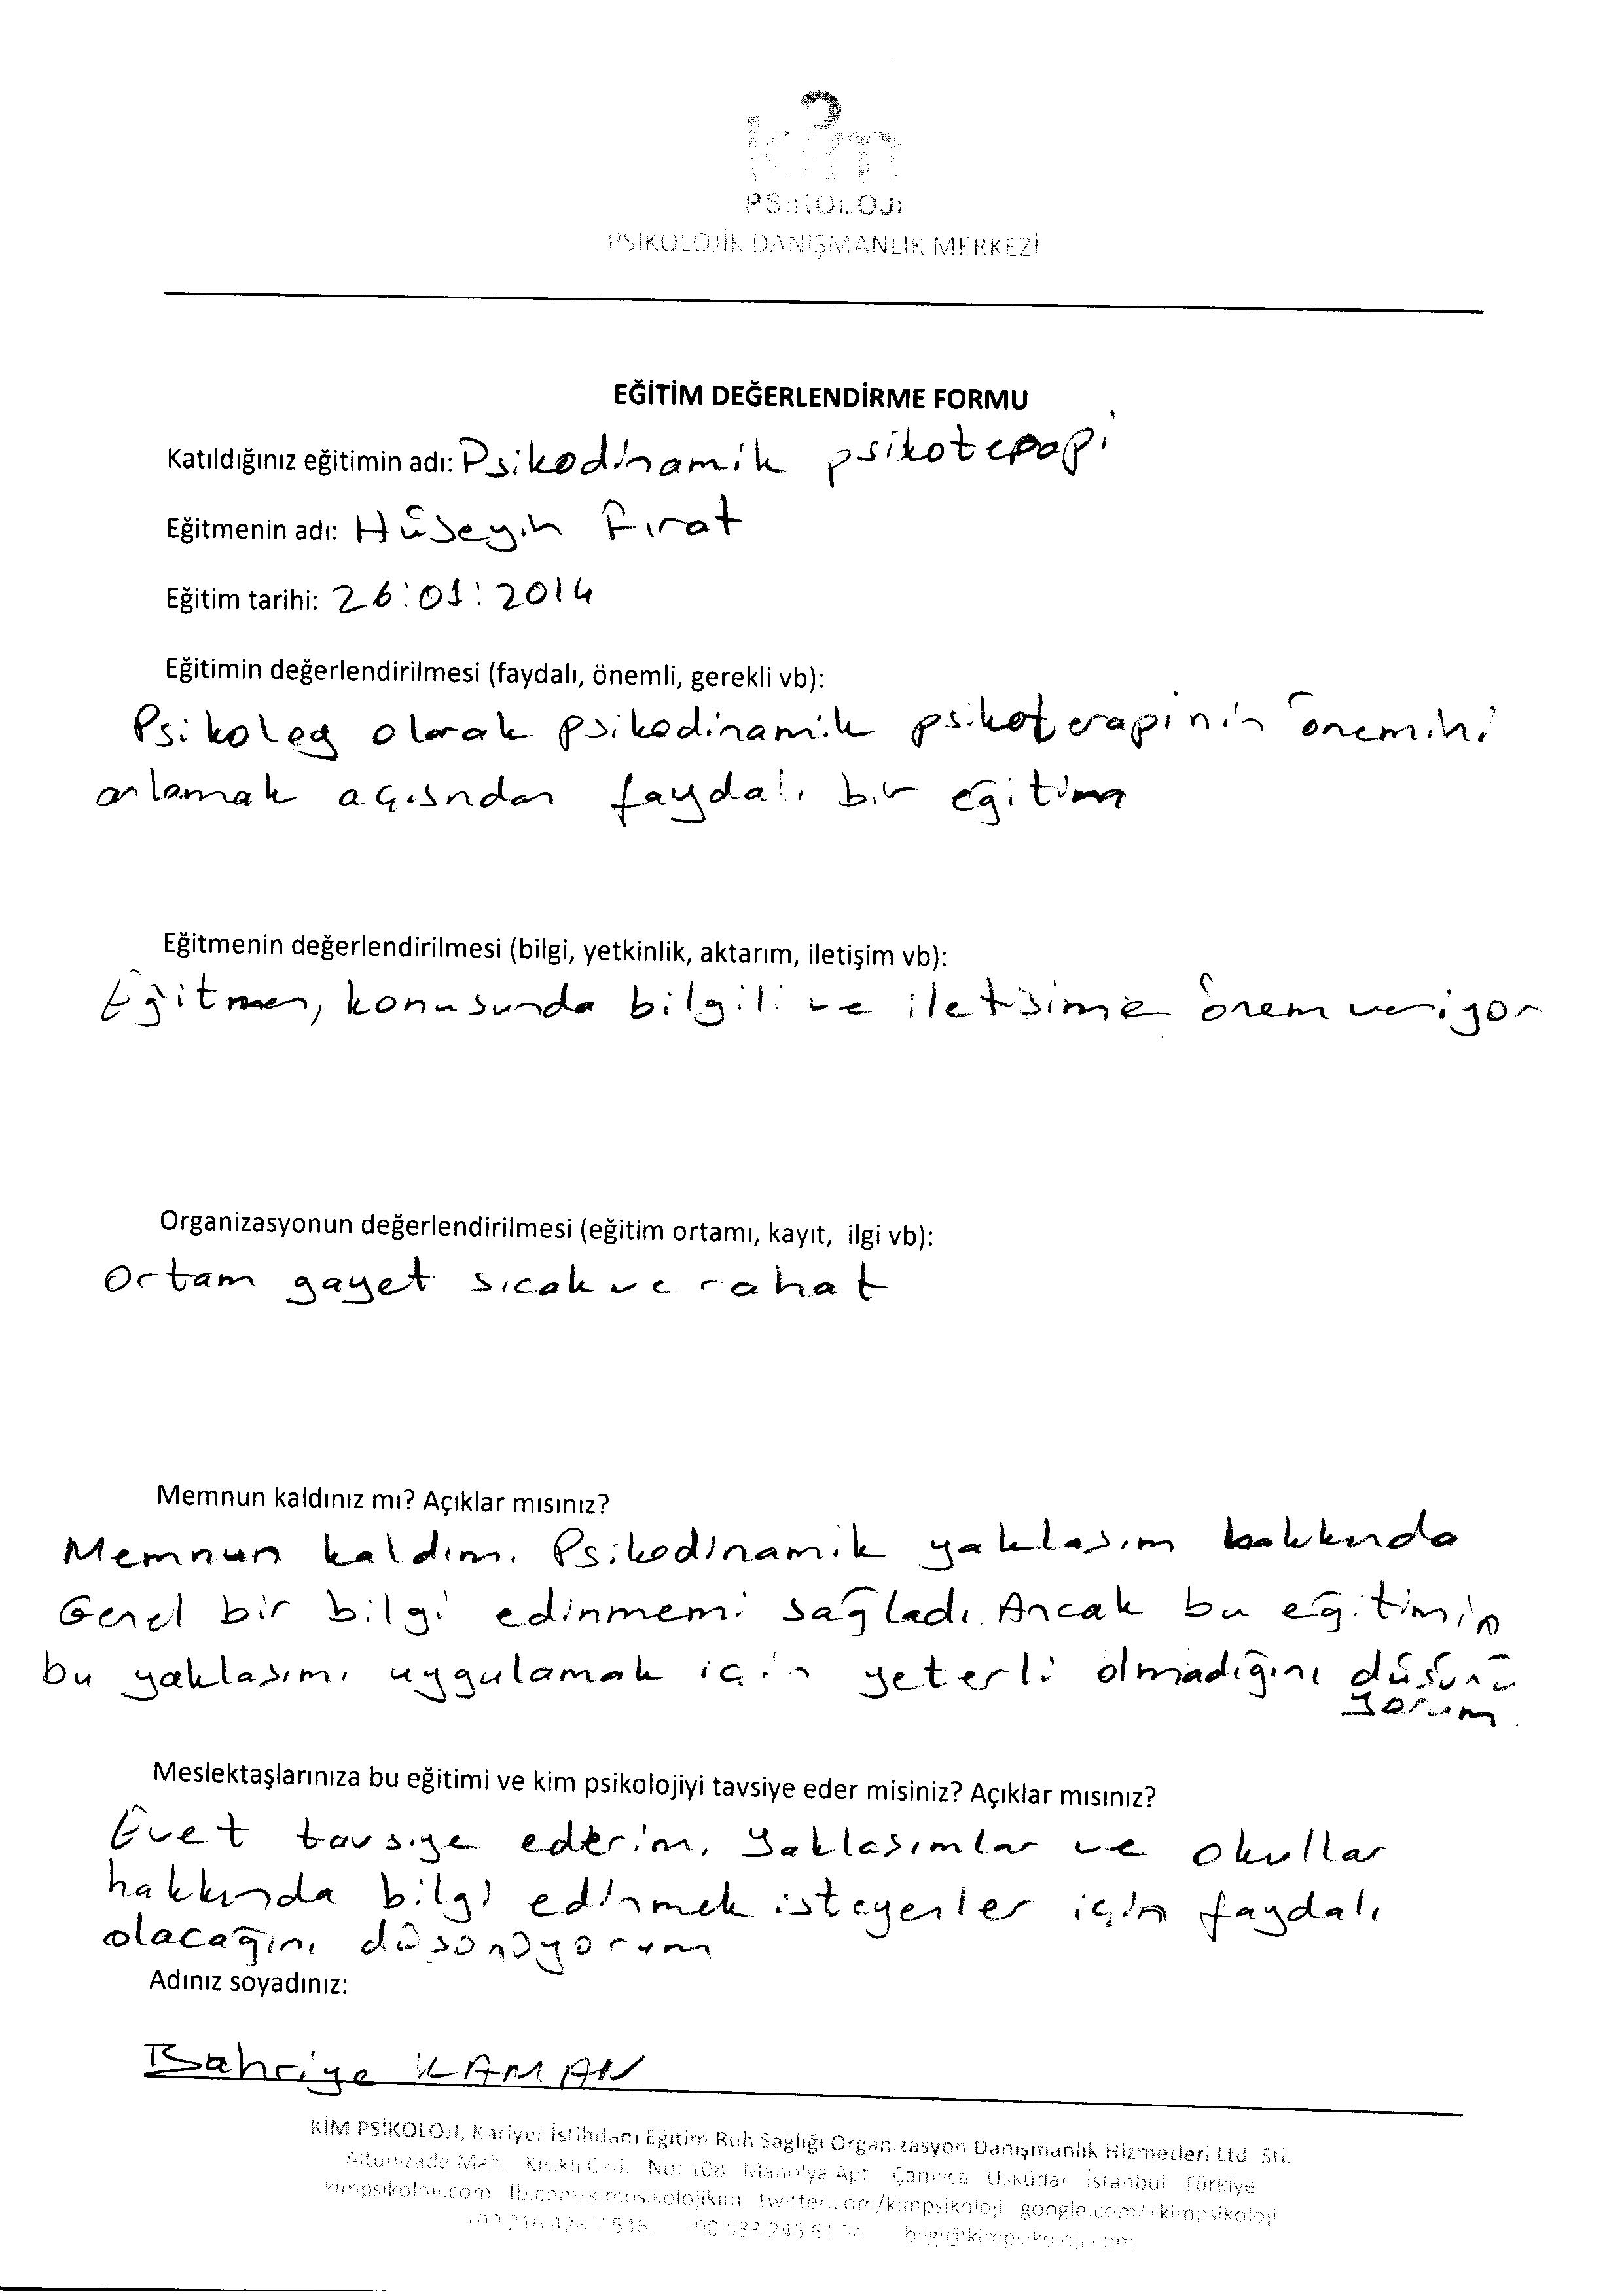 k?m
PSİKOLOJİ
PSİKOLOJİK DANIŞMANLIK MERKEZİ
EĞİTİM DEĞERLENDİRME FORMU
Katıldığınız eğitimin adı: Psikodinamik psikoterapi
Eğitmenin adı: Hüseyin Fırat
Eğitim tarihi: 26:01:2014
Eğitimin değerlendirilmesi (faydalı, önemli, gerekli vb):
Psikolog olarak psikodinamik psikoterapinin önemini
anlamak açısından faydalı bir eğitim
Eğitmenin değerlendirilmesi (bilgi, yetkinlik, aktarım, iletişim vb):
Eğitmen, konusunda bilgili ve iletisime önem veriyor
Organizasyonun değerlendirilmesi (eğitim ortamı, kayıt, ilgi vb):
Ortam gayet sıcak ve rahat
Memnun kaldınız mı? Açıklar mısınız?
Memnun kaldım. Psikodinamik yaklasım hakkında
Genel bir bilgi edinmemi sağladı. Ancak bu eğitimin
bu yaklasımı uygulamak için yeterli olmadığını düsünü
yorum.
Meslektaşlarınıza bu eğitimi ve kim psikolojiyi tavsiye eder misiniz? Açıklar mısınız?
Evet tavsiye ederim. Yaklasımlar ve okullar
hakkında bilgi edinmek isteyenler için faydalı
olacağını düsünüyorum
Adınız soyadınız:
Bahriye KAMAN
KİM PSİKOLOJİ, Kariyer İstihdam Eğitim Ruh Sağlığı Organizasyon Danışmanlık Hizmetleri Ltd. Şti.
Altunizade Mah. Kısıklı Cad. No: 108 Manolya Apt Çamlıca Üsküdar İstanbul Türkiye
kimpsikoloji.com fb.com/kimpsikolojikim twitter.com/kimpsikoloji google.com/+kimpsikoloji
bilgi@kimpsikoloji.com